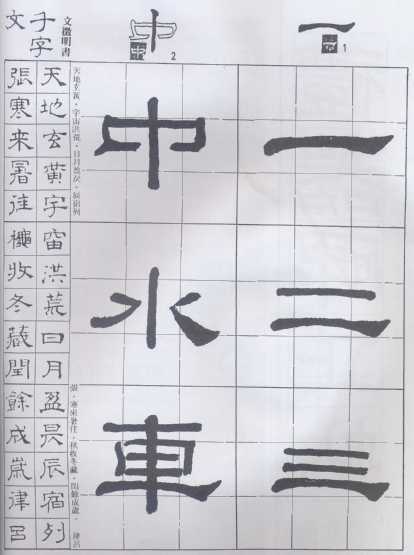 一
1
中
2
千字文
文徵明書
一
二
三
中
水
車
天地玄黃,宇宙洪荒,日月盈昃,辰宿列
張,寒來暑往,秋收冬藏,閏餘成歲,律呂
天地玄黃宇宙洪荒日月盈昃辰宿列
張寒来暑往穐收冬蔵閏餘成嵗律呂